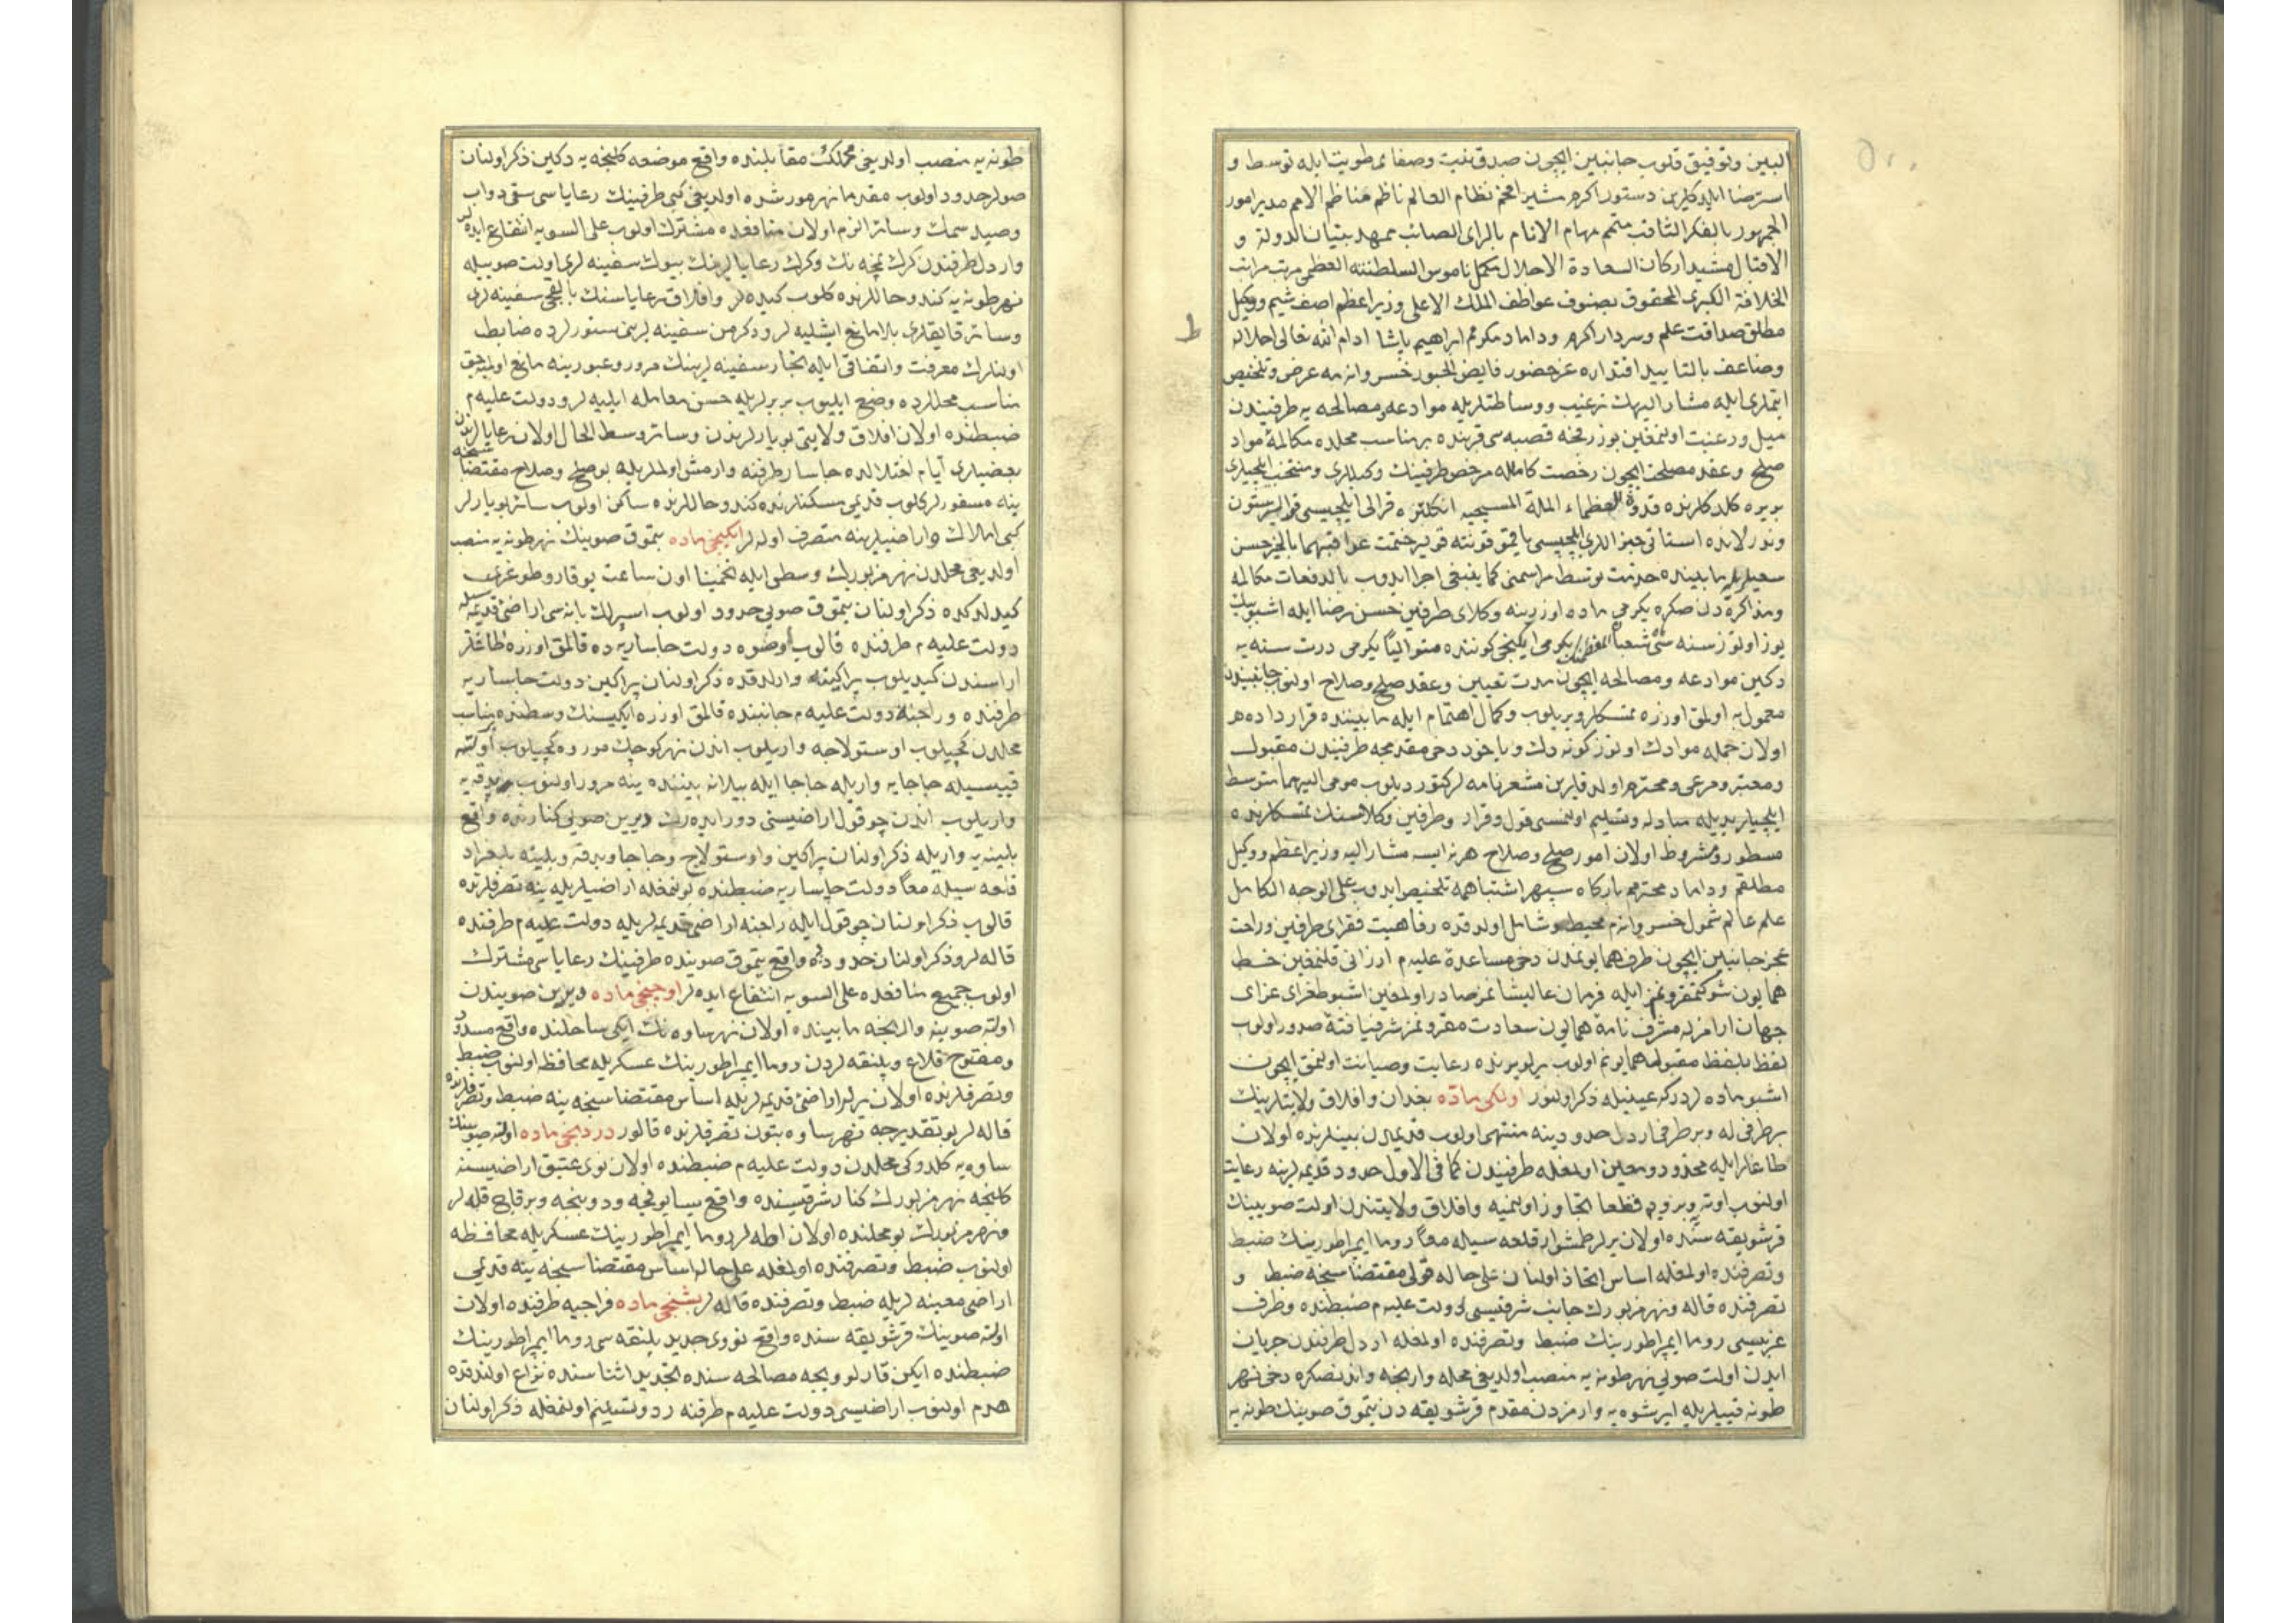 البين وتوفيق قلوب جانبين ايچون صدق نيت وصفاى طويت ايله توسط و
استرضا ايلدكلرين دستور اكرم مشير افخم نظام العالم ناظم مناظم الامم مدبر امور
الجمهور بالفكر الثاقب متمم مهام الانام بالراى الصائب ممهد بنيان الدولة و
الاقبال مشيد اركان السعادة والاجلال مكمل ناموس السلطنة العظمى مرتب مراتب
الخلافة الكبرى المحفوف بصنوف عواطف الملك الاعلى وزير اعظم اصف شيم ووكيل
مطلق صداقت علم وسردار اكرم وداماد مكرمم ابراهيم پاشا ادام الله تعالى اجلاله
وضاعف بالتاييد اقتداره عز حضور فايض الحبور خسروانه مه عرض وتلخيص
ايتملرى ايله مشار اليهك ترغيب ووساطتلريله موادعه ومصالحه يه طرفيندن
ميل ورغبت اولنمغين پوزرفچه قصبه سى قربنده بر مناسب محلده مكالمۀ مواد
صلح وعقد مصلحت ايچون رخصت كامله مرخص طرفينك وكيللرى ومنتخب ايلچيلرى
بر يره كلدكلرنده قدوة العظماء الملة المسيحيه انكلتره قرالى ايلچيسى
ونديرلانده استاتى جنرالدى ايلچيسى ياقمو قوليه ختمت عواقبهما بالخير حسن
سعيلريله مابينده خدمت توسط مراسمنى كما ينبغى اجرا ايدوب بالدفعات مكالمه
ومذاكره دن صكره يكرمى ماده اوزرينه وكلاى طرفين حسن رضا ايله اشبو بيك
يوز اوتوز سنه سى شعبان المعظمنك يكرمى ايكنجى كوننده متواليًا يكرمى درت سنه يه
دكين موادعه ومصالحه ايچون مدت تعيين وعقد صلح وصلاح اولنوب جانبيندن
معمول به اولمق اوزره تمسكلر ويريلوب وكمال اهتمام ايله مابيننده قرارداده
اولان جمله موادك اوتوز كونه دك وياخود دخى مقدمجه طرفيندن مقبول
ومعتبر ومرعى ومحترم اولدقلرين مشعر نامه لر كتورديلوب مومى اليهما متوسط
ايلچيلر يديله مبادله وتسليم اولنمسى قول وقرار وطرفين وكلاسنك تمسكلرنده
مسطور ومشروط اولان امور صلح وصلاح هر نه ايسه مشار اليه وزير اعظم ووكيل
مطلقم وداماد محترمم باركاه سپهر اشتباهمه تلخيص ايدوب على الوجه الكامل
علم عالم شمول خسروانه م محيط وشامل اولدقده رفاهيت فقراى طرفين وراحت
عجزۀ جانبين ايچون طرف همايونمدن دخى مساعدۀ عليه م ارزانى قلنمغين خط
همايون شوكتمقرونم ايله فرمان عاليشانم صادر اولمغين اشبو طغراى غراى
جهان ارامزله مشرف نامۀ همايون سعادت مقرونمز شرفيافتۀ صدور اولوب
لفظ بلفظ مقبول همايونم اولوب يرلو يرنده رعايت وصيانت اولنمق ايچون
اشبو ماده لردركه عينيله ذكر اولنور اولكى ماده بغدان وافلاق ولايتلرينك
بر طرفى له وبر طرفى اردل حدودينه منتهى اولوب قديمدن بينلرنده اولان
طاغلر ايله محدود ومعين اولمغله طرفيندن كما فى الاول حدود قديمه لرينه رعايت
اولنوب اوته وبرويه قطعا تجاوز اولنميه وافلاق ولايتندن اولت صويينك
قرشو يقه سنده اولان يرلر طمشوار قلعه سيله معًا روما ايمپراطورينك ضبط
وتصرفنده اولمغله اساس اتخاذ اولنان على حاله قولى مقتضاسنجه ضبط و
تصرفنده قاله ونهر مزبورك جانب شرقيسى دولت عليه م ضبطنده وطرف
غربيسى روما ايمپراطورينك ضبط وتصرفنده اولمغله اردل طرفندن جريان
ايدن اولت صويى نهر طونه يه منصب اولديغى محله وارنجه واندنصكره دخى نهر
طونه قييلريله ايرشوه يه وارمزدن مقدم قرشو يقه دن تيموق صوينك طونه يه
طونه يه منصب اولديغى محلك مقابلنده واقع موضعه كلنجه يه دكين ذكر اولنان
صولر حدود اولوب مقدما نهر مورشده اولديغى كبى طرفينك رعاياسى سقى دواب
وصيد سمك وسائر الزم اولان منافعده مشترك اولوب على السويه انتفاع ايده لر
واردل طرفندن كرك نمچه نك وكرك رعايالرينك بيوك سفينه لرى اولت صوييله
نهر طونه يه كندو حاللرنده كلوب كيده لر وافلاق رعاياسنك بالقجى سفينه لرى
وسائر قايقلرى بلا مانع ايشليه لر ودكرمن سفينه لرينى سنورلرده ضابط
اولنلرك معرفت واتفاقى ايله تجار سفينه لرينك مرور وعبورينه مانع اولميه جق
مناسب محللرده وضع ايليوب بربرلريله حسن معامله ايليه لر ودولت عليه م
ضبطنده اولان افلاق ولايتى بويارلرندن وسائر وسط الحال اولان رعايالرندن
بعضيلرى ايام اختلالده چاسار طرفنه وارمش اولملريله بو صلح وصلاح مقتضاسنجه
ينه مسفورلر كلوب قديمى مسكنلرنده كندو حاللرنده ساكن اولوب سائر بويارلر
كبى املاك واراضيلرينه متصرف اوله لر ايكنجى ماده تيموق صوينك نهر طونه يه منصب
اولديغى محلدن نهر مزبورك وسطى ايله تخمينا اون ساعت يوقارو طوغرى
كيدلدكده ذكر اولنان تيموق صويى حدود اولوب اسپرلك بانه سى اراضئ قديمه سيله
دولت عليه م طرفنده قالوب اوضوه دولت چاساريه ده قالمق اوزره طاغلر
اراسندن كيديلوب پراكينه وارلدقده ذكر اولنان پراكين دولت چاساريه
طرفنده وراجنه دولت عليه م جانبنده قالمق اوزره ايكيسنك وسطنده مناسب
محلدن كچيلوب اوستولاجه واريلوب اندن نهر كوچك موروه كچيلوب اوته
قييسيله چاچايه واريله چاچا ايله بيلانه بيننده ينه مرور اولنوب بدقه يه
واريلوب اندن چوقول اراضيسنى دور ايده رك ديرين صويى كنارنده واقع
بلينه يه واريله ذكر اولنان پراكين واوستولاج وچاچا وبدقه وبلينه بلغراد
قلعه سيله معًا دولت چاساريه ضبطنده بولنمغله اراضيلريله ينه تصرفلرنده
قالوب ذكر اولنان چوقول ايله راجنه اراضئ قديمه لريله دولت عليه م طرفنده
قاله لر وذكر اولنان حدودده واقع تيموق صوينده طرفينك رعاياسى مشترك
اولوب جميع منافعده على السويه انتفاع ايده لر اوچنجى ماده ديرين صويندن
اونه صوينه وارنجه مابينده اولان نهر ساوه نك ايكى ساحلنده واقع مسدود
ومفتوح قلاع وپلنقه لردن روما ايمپراطورينك عسكريله محافظه اولنوب ضبط
وتصرفلرنده اولان يرلر اراضئ قديمه لريله اساس مقتضاسنجه ينه ضبط وتصرفلرنده
قاله لر بو تقديرجه نهر ساوه بتون تصرفلرنده قالور دردنجى ماده اونه صوينك
ساوه يه كلدوكى محلدن دولت عليه م ضبطنده اولان نوى عتيق اراضيسنه
كلنجه نهر مزبورك كنار شرقيسنده واقع يسانوفچه ودوبيچه وبر قاچ قله لر
ونهر مزبورك بو محلنده اولان اطه لر روما ايمپراطورينك عسكريله محافظه
اولنوب ضبط وتصرفنده اولمغله على حاله اساس مقتضاسنجه ينه قديمى
اراضئ معينه لريله ضبط وتصرفنده قاله لر بشنجى ماده خراجيه طرفنده اولان
اونه صوينك قرشو يقه سنده واقع نووى جديد پلنقه سى روما ايمپراطورينك
ضبطنده ايكن قارلوويچه مصالحه سنده تجديد اثناسنده نزاع اولندقده
هدم اولنوب اراضيسى دولت عليه م طرفنه رد وتسليم اولنمغله ذكر اولنان